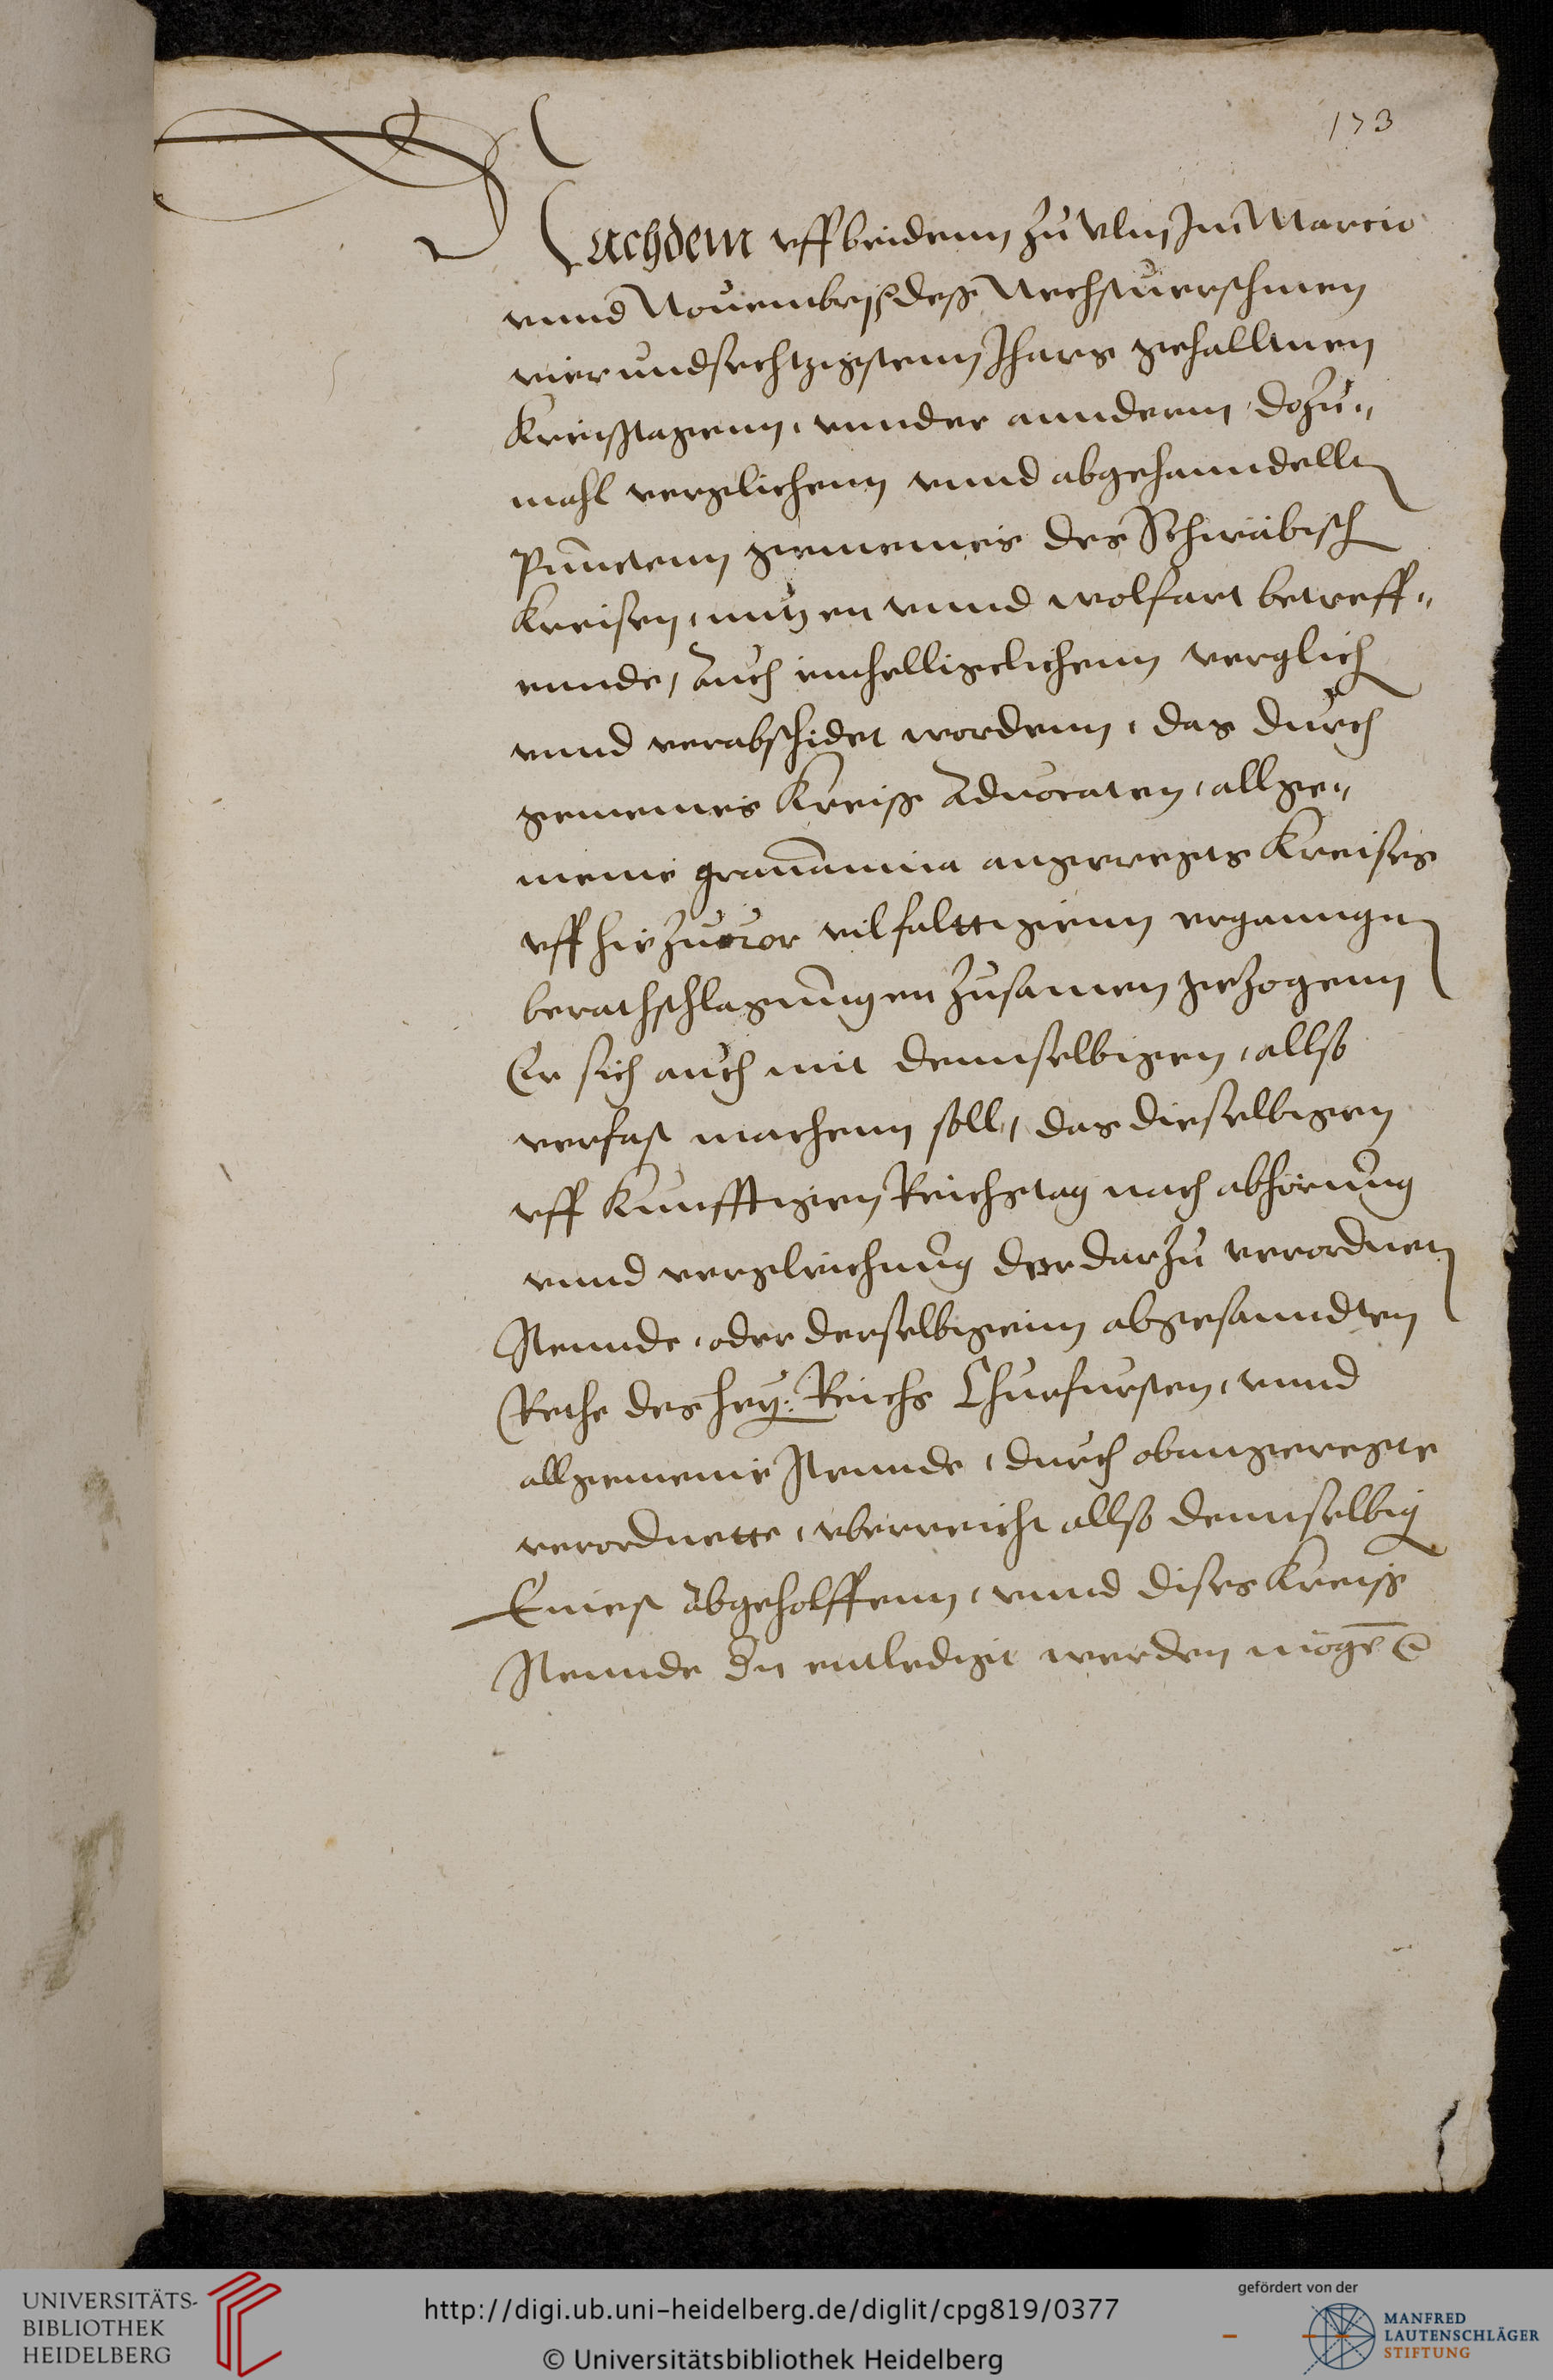 173
Nachdem vff beidenn zu Vlm Im Marcio
vnnd Nouembris deß Nechstuerschinen
vier vndsechtzigstenn Jhars gehalltnen
Kreistagenn, vnnder annderm dozu„
mahl verglichenn vnnd abgehanndellt
Puncten gemeines des Schwäbisch
Kreisen, nutzen vnnd wolfart betreff„
ennde, Auch einhelligclichenn verglich
vnnd verabschidet wordenn, das durch
gemeines Kreiß Aduocaten, allge„
meine grauamina angeregts Kreises
vff hieZuuor vilfalttigenn erganngn
berathschlagungen Zusamen gezogenn
Er sich auch mit dennselbigen, allso
verfast machenn soll, das dieselbigen
vff Kunfftigen Reichstag nach abhörung
vnnd vergleichung der darzu verordneten
Stennde, oder derselbigenn abgesanndten
Rethe des hey: Reichs Churfursten, vnnd
allgemeine Stennde, durch obangeregte
verordnette, vberreicht allso dennselbig
Einest abgeholffenn, vnnd dises Kreiß
Stennde entledigt werden möge
UNIVERSITÄTS-
BIBLIOTHEK
HEIDELBERG
http://digi.ub.uni-heidelberg.de/diglit/cpg819/0377
© Universitätsbibliothek Heidelberg
gefördert von der
MANFRED
LAUTENSCHLÄGER
STIFTUNG